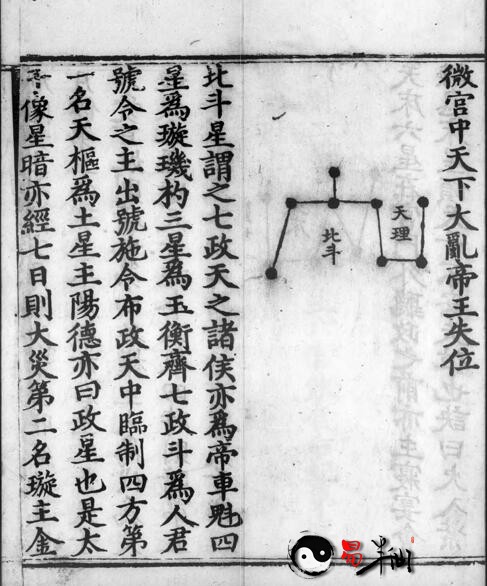 微宫中天下大亂帝王失位
天理
北斗
北斗星謂之七政天之諸侯亦爲帝車魁四
星爲璇璣杓三星爲玉衡齊七政斗爲人君
號令之主出號施令布政天中臨制四方第
一名天樞爲土星主陽德亦曰政星也是太
像星暗亦經七日則大災第二名璇主金
易半仙